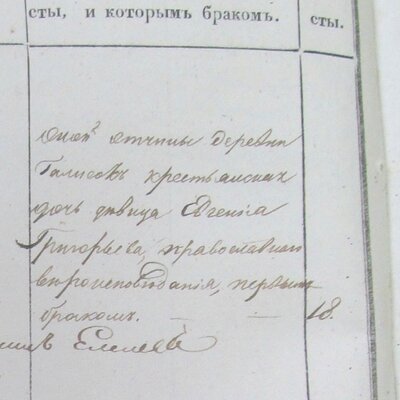 сты, и которымъ бракомъ.
сты.
отчины деревни
крестьянская
дочь девица Евгенія
Григорьева, православнаго
вѣроисповѣданія, первымъ
бракомъ. 18.